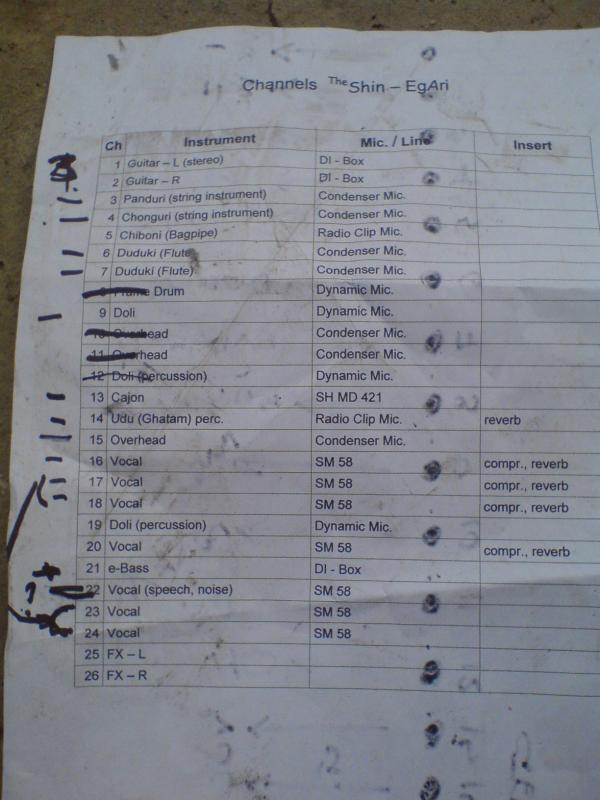 Channels The Shin – EgAri
Ch Instrument Mic. / Line Insert
1 Guitar – L (stereo) DI - Box
2 Guitar – R DI - Box
3 Panduri (string instrument) Condenser Mic.
4 Chonguri (string instrument) Condenser Mic.
5 Chiboni (Bagpipe) Radio Clip Mic.
6 Duduki (Flute) Condenser Mic.
7 Duduki (Flute) Condenser Mic.
8 Frame Drum Dynamic Mic.
9 Doli Dynamic Mic.
10 Overhead Condenser Mic.
11 Overhead Condenser Mic.
12 Doli (percussion) Dynamic Mic.
13 Cajon SH MD 421
14 Udu (Ghatam) perc. Radio Clip Mic. reverb
15 Overhead Condenser Mic.
16 Vocal SM 58 compr., reverb
17 Vocal SM 58 compr., reverb
18 Vocal SM 58 compr., reverb
19 Doli (percussion) Dynamic Mic.
20 Vocal SM 58 compr., reverb
21 e-Bass DI - Box
22 Vocal (speech, noise) SM 58
23 Vocal SM 58
24 Vocal SM 58
25 FX – L
26 FX – R